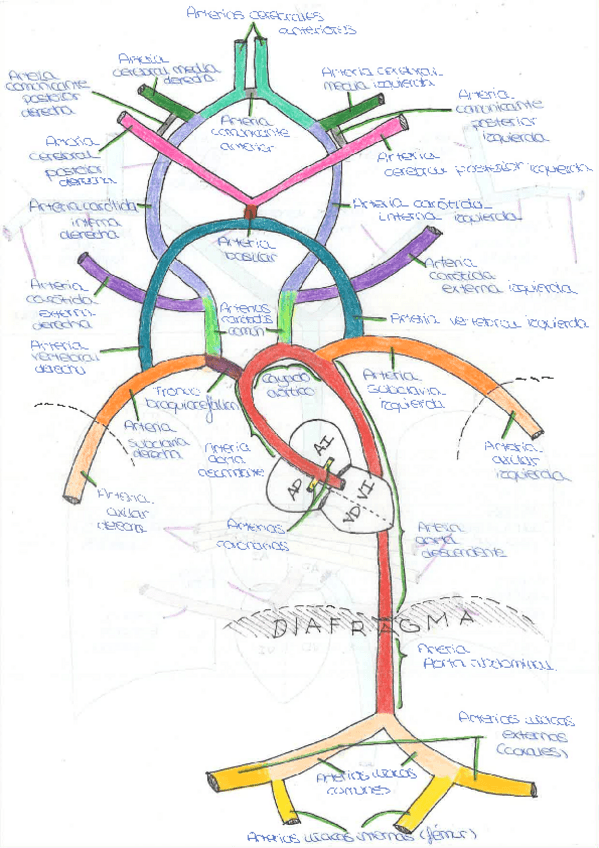 Arterias cerebrales
anteriores
Arteria
cerebral media
derecha
Arteria cerebral
media izquierda
Arteria
comunicante
posterior
derecha
Arteria
comunicante
posterior
izquierda
Arteria
comunicante
anterior
Arteria
cerebral
posterior
derecha
Arteria
cerebral posterior izquierda
Arteria carótida
interna
derecha
Arteria carótida
interna izquierda
Arteria
basilar
Arteria
carótida
externa
derecha
Arteria
carótida
externa izquierda
Arterias
carótidas
común
Arteria
vertebral
derecha
Arteria vertebral izquierda
Tronco
braquiocefálico
Cayado
aórtico
Arteria
subclavia
izquierda
Arteria
subclavia
derecha
Arteria
aorta
ascendente
AI
AD
VI
VD
Arteria
axilar
izquierda
Arteria
axilar
derecha
Arterias
coronarias
Arteria
aorta
descendente
DIAFRAGMA
Arteria
Aorta abdominal
Arterias ilíacas
externas
Arterias ilíacas
comunes
Arterias ilíacas internas (fémur)